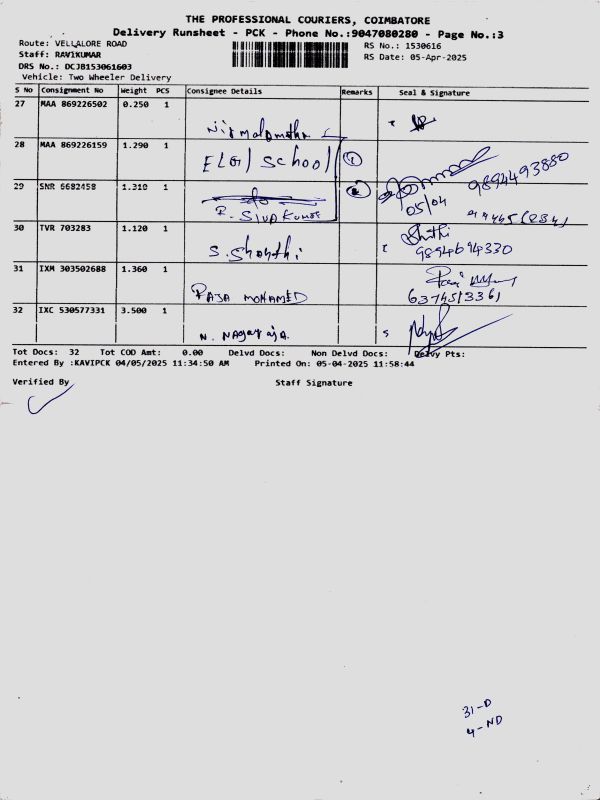 THE PROFESSIONAL COURIERS, COIMBATORE
Delivery Runsheet - PCK - Phone No.:9047080280 - Page No.:3
Route: VELLALORE ROAD
RS No.: 1530616
Staff: RAVIKUMAR
RS Date: 05-Apr-2025
DRS No.: DCJB153061603
Vehicle: Two Wheeler Delivery
S No Consignment No Weight PCS Consignee Details Remarks Seal & Signature
27 MAA 869226502 0.250 1
28 MAA 869226159 1.290 1 ELGI School 1
9894493880
29 SNR 6682458 1.310 1 R. SIVA KUMAR 2 05/04
30 TVR 703283 1.120 1 S. Shanthi Shathi
9894694330
31 IXM 303502688 1.360 1 RAJA MOHAMED
6374513361
32 IXC 530577331 3.500 1 N. Nagaraja.
Tot Docs: 32 Tot COD Amt: 0.00 Delvd Docs: Non Delvd Docs: Delvy Pts:
Entered By :KAVIPCK 04/05/2025 11:34:50 AM Printed On: 05-04-2025 11:58:44
Verified By Staff Signature
31-D
4-ND